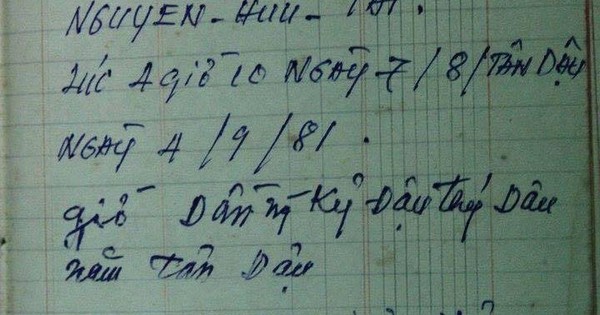 NGUYEN-HUU-TÀI.
Lúc 4 giờ 10 NGÀY 7/8/TÂN DẬU
NGÀY 4/9/81.
giờ Dần Kỷ Dậu Dậu
năm Tân Dậu